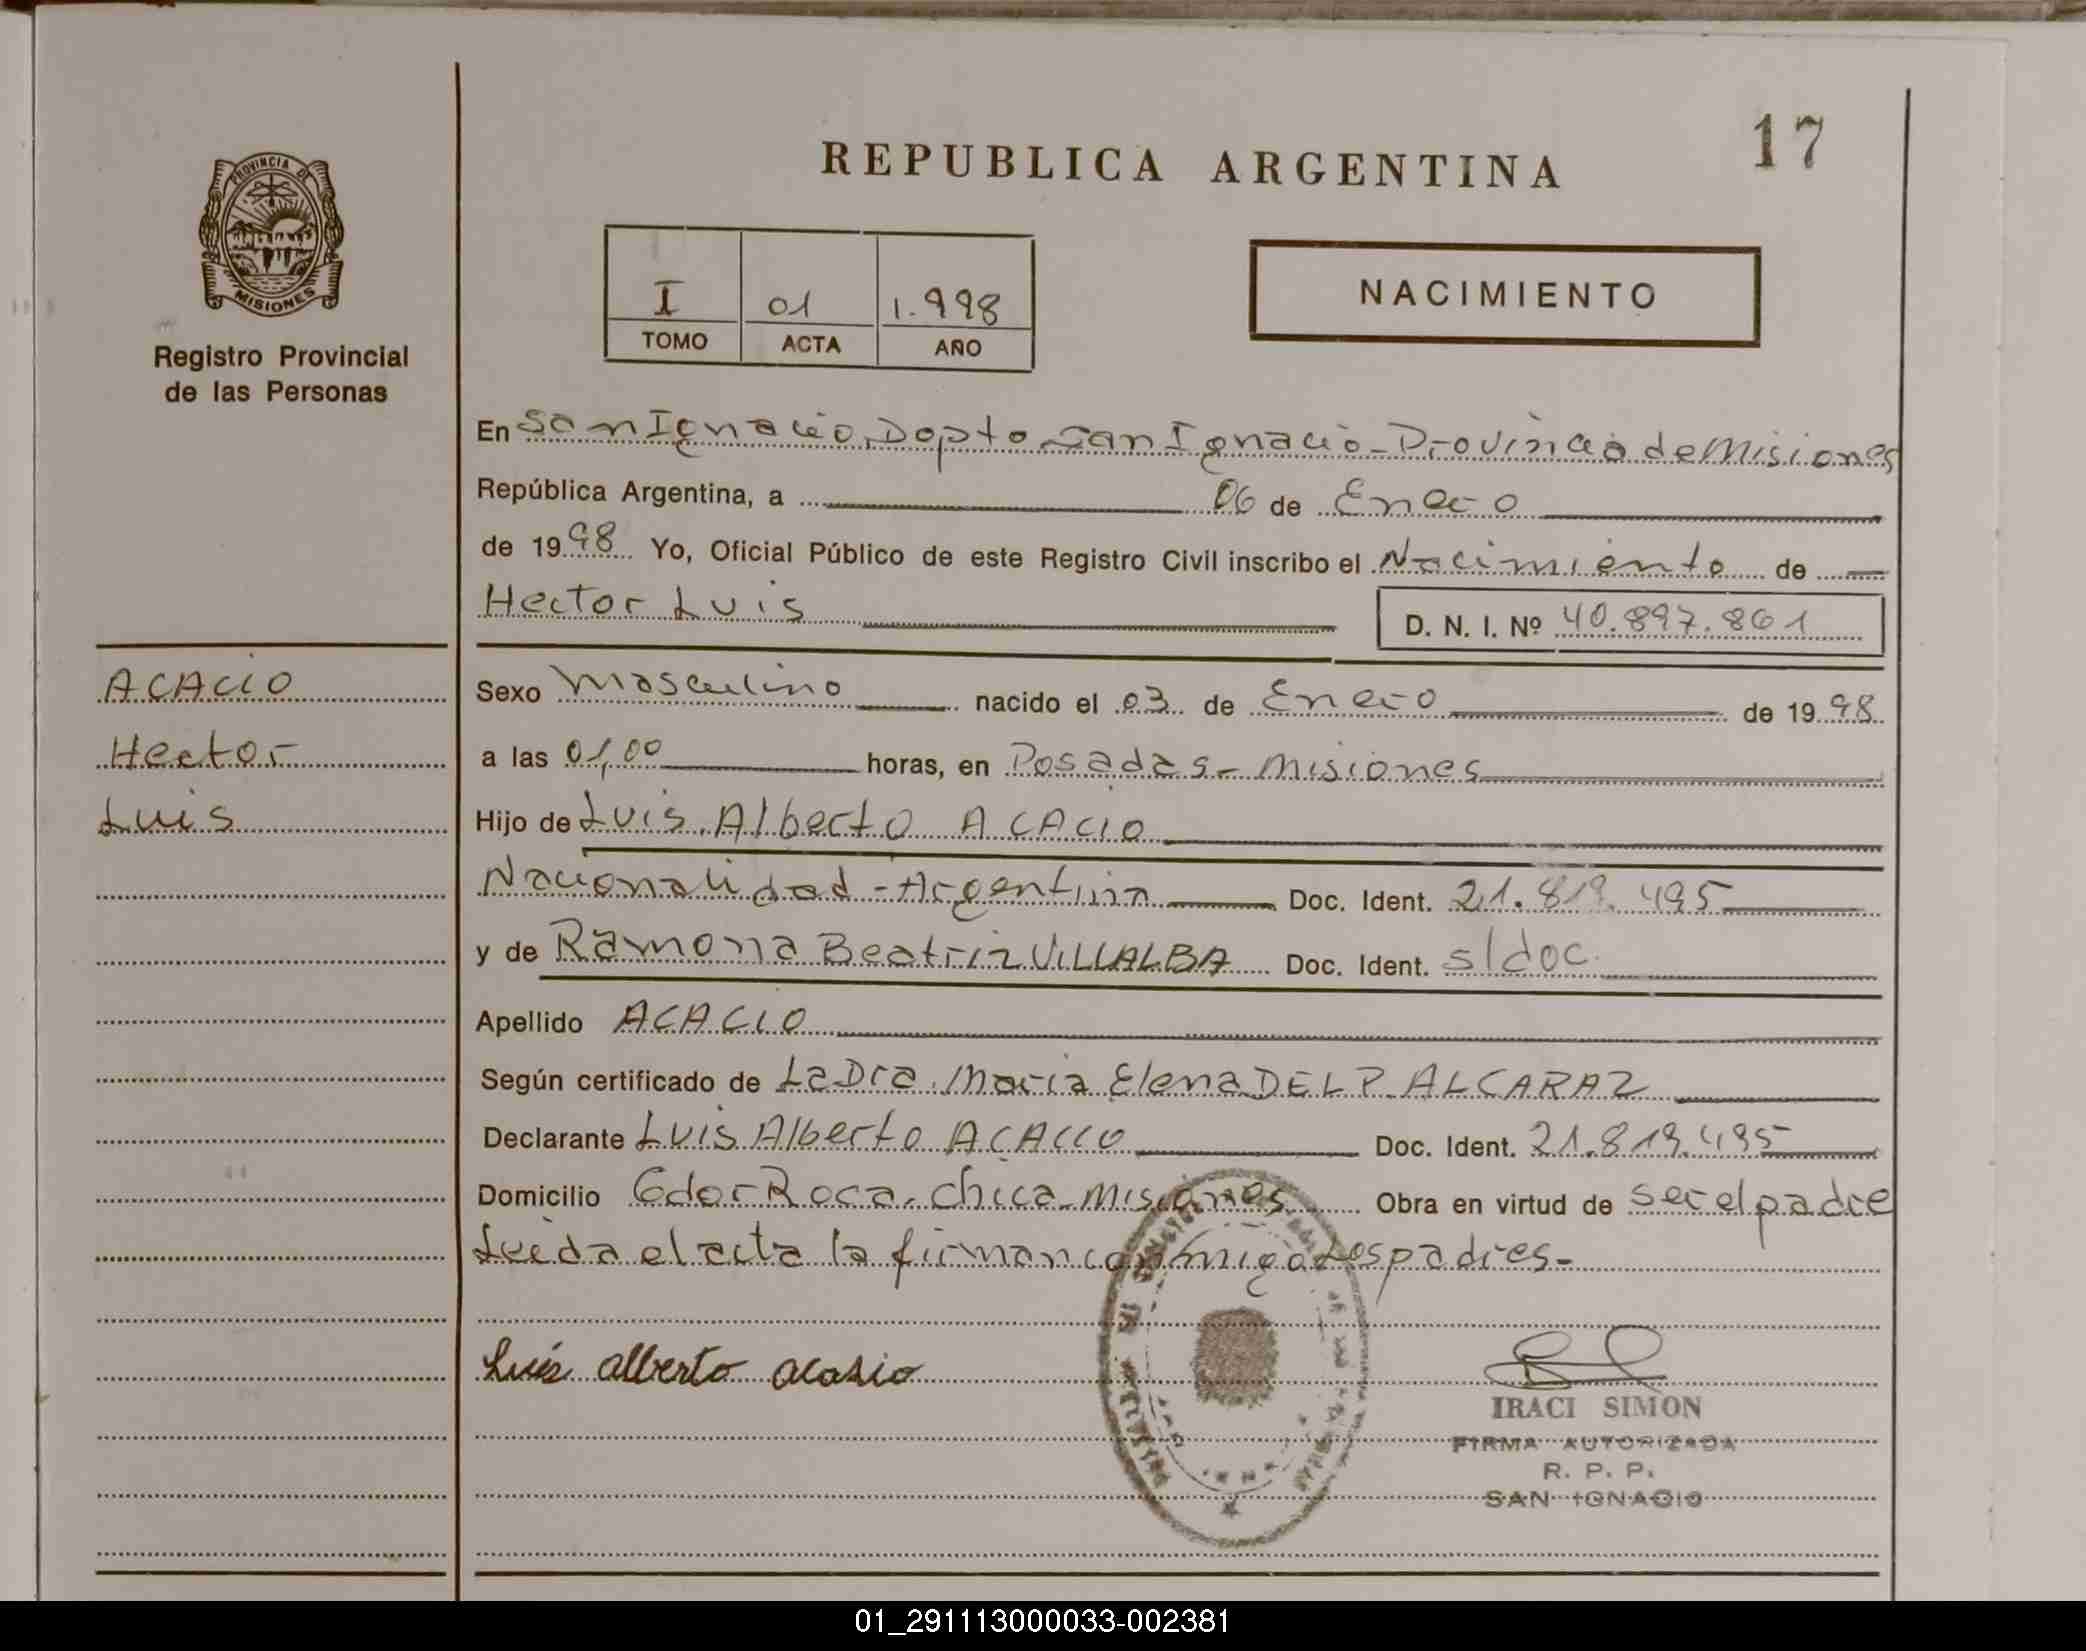 17
REPUBLICA ARGENTINA
PROVINCIA DE
MISIONES
Registro Provincial
de las Personas
I 01 1.998
TOMO ACTA AÑO
NACIMIENTO
En San Ignacio, Dopto San Ignacio - Provincia de Misiones
República Argentina, a 06 de Enero
de 1998 Yo, Oficial Público de este Registro Civil inscribo el Nacimiento de
Hector Luis D. N. I. Nº 40.897.861
ACACIO
Hector
Luis
Sexo Masculino nacido el 03 de Enero de 1998
a las 01,00 horas, en Posadas - Misiones
Hijo de Luis Alberto ACACIO
Nacionalidad - Argentina Doc. Ident. 21.819.495
y de Ramona Beatriz VILLALBA Doc. Ident. s/doc.
Apellido ACACIO
Según certificado de La Dra. Maria Elena DEL P. ALCARAZ
Declarante Luis Alberto ACACIO Doc. Ident. 21.819.495
Domicilio Gdor Roca. chica - Misiones Obra en virtud de ser el padre
Leida el acta la firman conmigo Los padres -
Luis alberto acasio
IRACI SIMON
FIRMA AUTORIZADA
R. P. P.
SAN IGNACIO
01_291113000033-002381